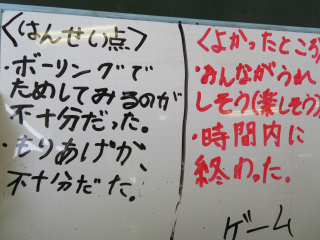 〈はんせい点〉
・ボーリングで
ためしてみるのが
不十分だった。
・もりあげが、
不十分だった。
〈よかったところ
・みんながうれ
しそう(楽しそう)
・時間内に
終わった。
ゲーム